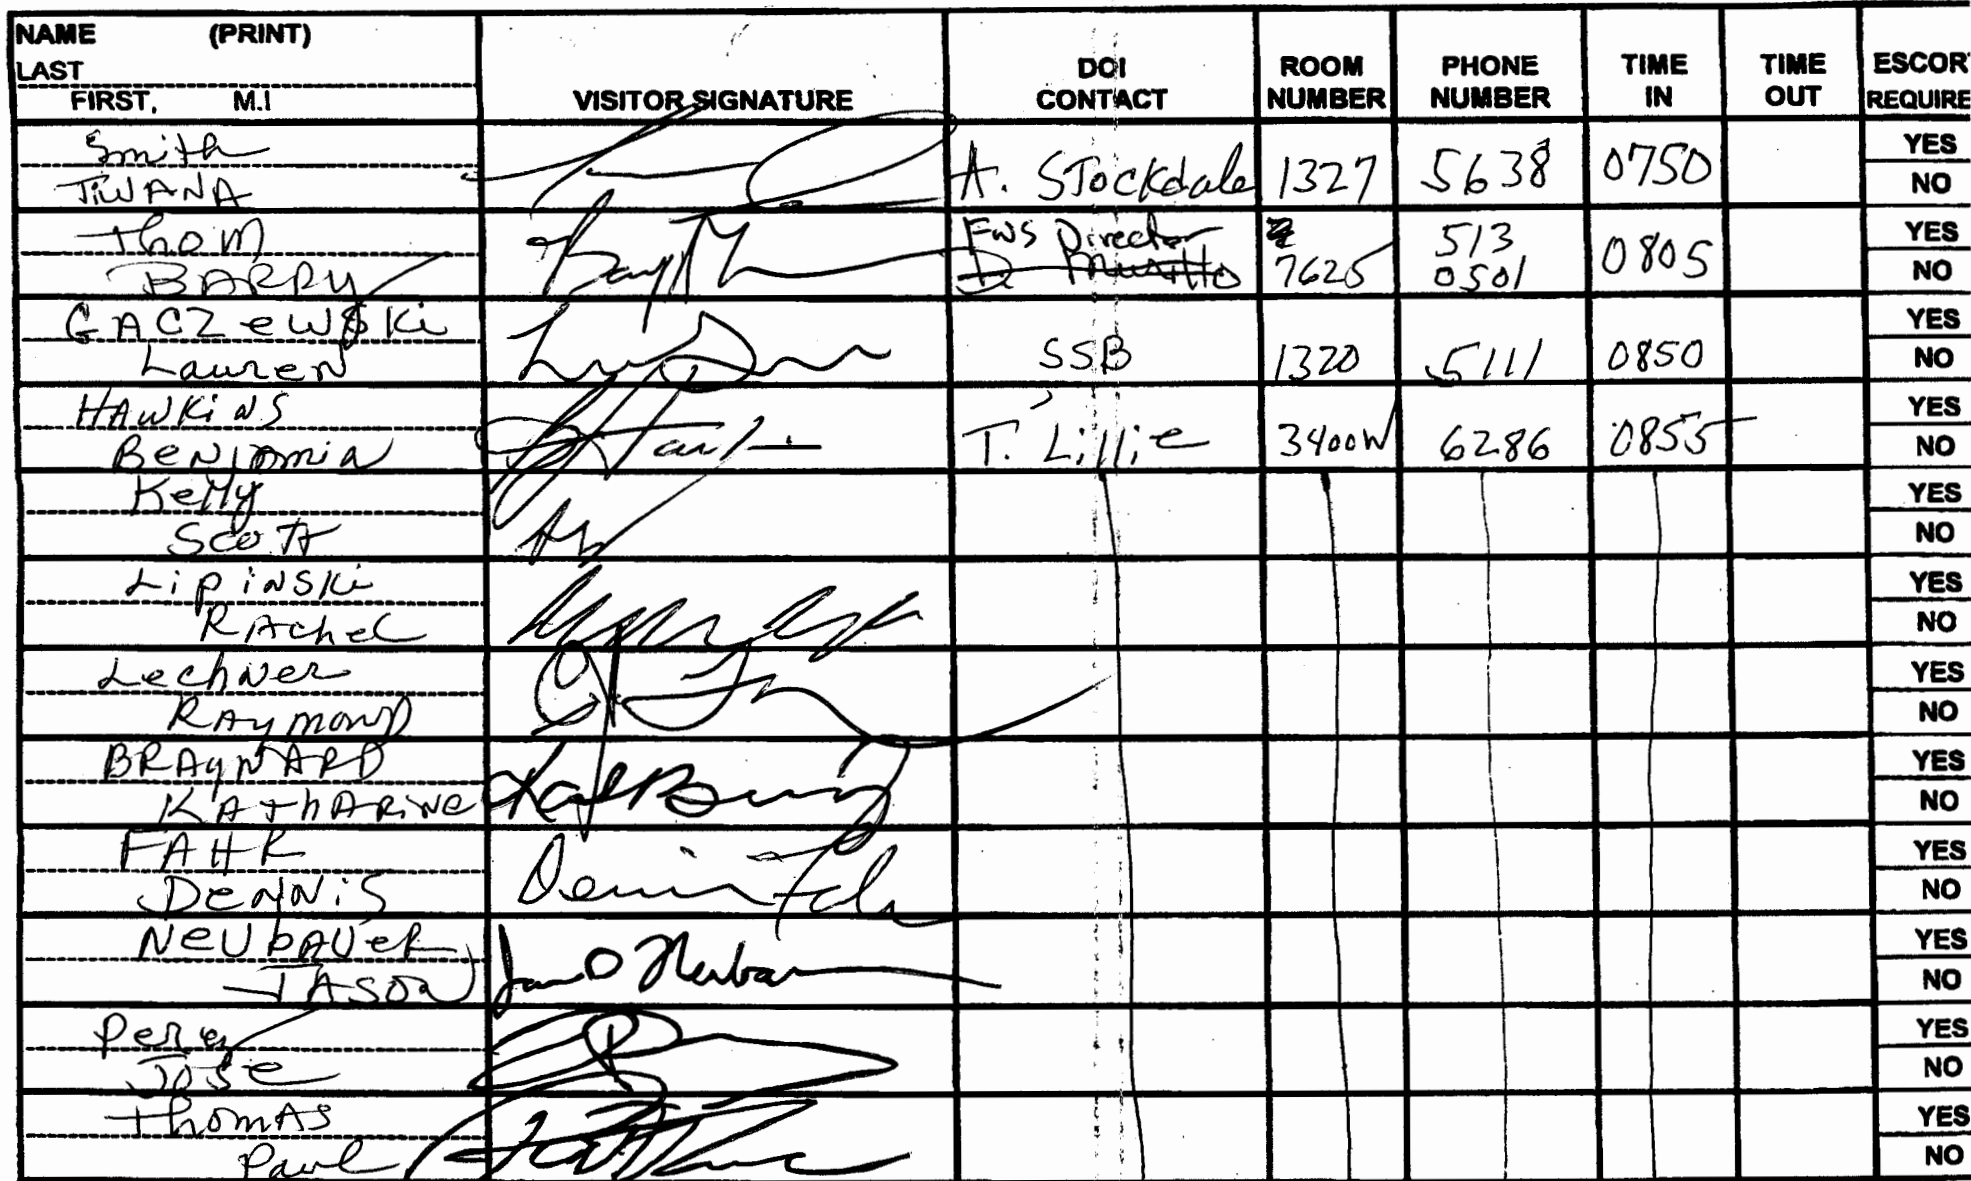 NAME (PRINT)
LAST
FIRST, M.I
VISITOR SIGNATURE
DOI CONTACT
ROOM NUMBER
PHONE NUMBER
TIME IN
TIME OUT
ESCOR
REQUIRE
Smith
TiWANA
A. Stockdale 1327 5638 0750
YES
NO
Thom
BARRY
FWS Director
7625
513
0501
0805
YES
NO
GACZewSKi
Lauren
SSB 1320 5111 0850
YES
NO
HAWKiNS
BeNJamiN
T. Lillie 3400W 6286 0855
YES
NO
Kelly
Scott
YES
NO
LipiNSKi
RAcheL
YES
NO
LechNer
RAymonD
YES
NO
BRAyNARD
KAThARiNe
YES
NO
FAHR
DeNNiS
Dennis Fahr
YES
NO
NeUbAUeR
JASON
Jason Neubauer
YES
NO
Perez
Jose
YES
NO
ThomAS
Paul
YES
NO